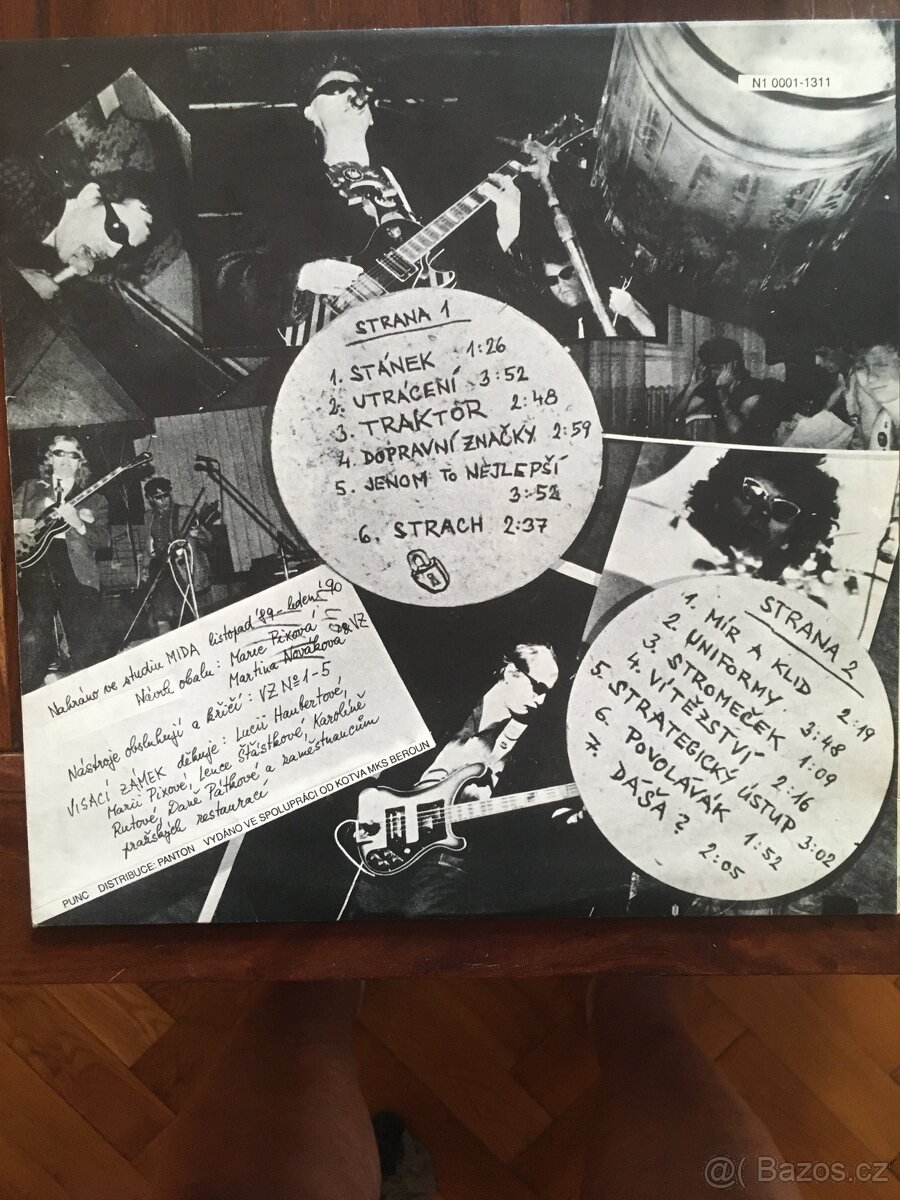 N1 0001-1311
STRANA 1
1. STÁNEK 1:26
2. UTRÁCENÍ 3:52
3. TRAKTOR 2:48
4. DOPRAVNÍ ZNAČKY 2:59
5. JENOM TO NEJLEPŠÍ
3:52
6. STRACH 2:37
STRANA 2
1. MÍR A KLID 2:19
2. UNIFORMY 3:48
3. STROMEČEK 1:09
4. VÍTĚŽSTVÍ 2:16
5. STRATEGICKÝ ÚSTUP 3:02
6. POVOLÁVÁK 1:52
7. DÁŠA? 2:05
Nahráno ve studiu MIDA listopad '89 - leden '90
Návrh obalu: Marie Pixová
Martina Nováková & VZ
Nástroje obsluhují a křičí: VZ № 1-5
VISACÍ ZÁMEK děkuje: Lucii Haubertové,
Marii Pixové, Lence Šťástkové, Karolíně
Rutové, Daně Pátkové a zaměstnancům
pražských restaurací
PUNC DISTRIBUCE: PANTON VYDÁNO VE SPOLUPRÁCI OD KOTVA MKS BEROUN
@( Bazos.cz